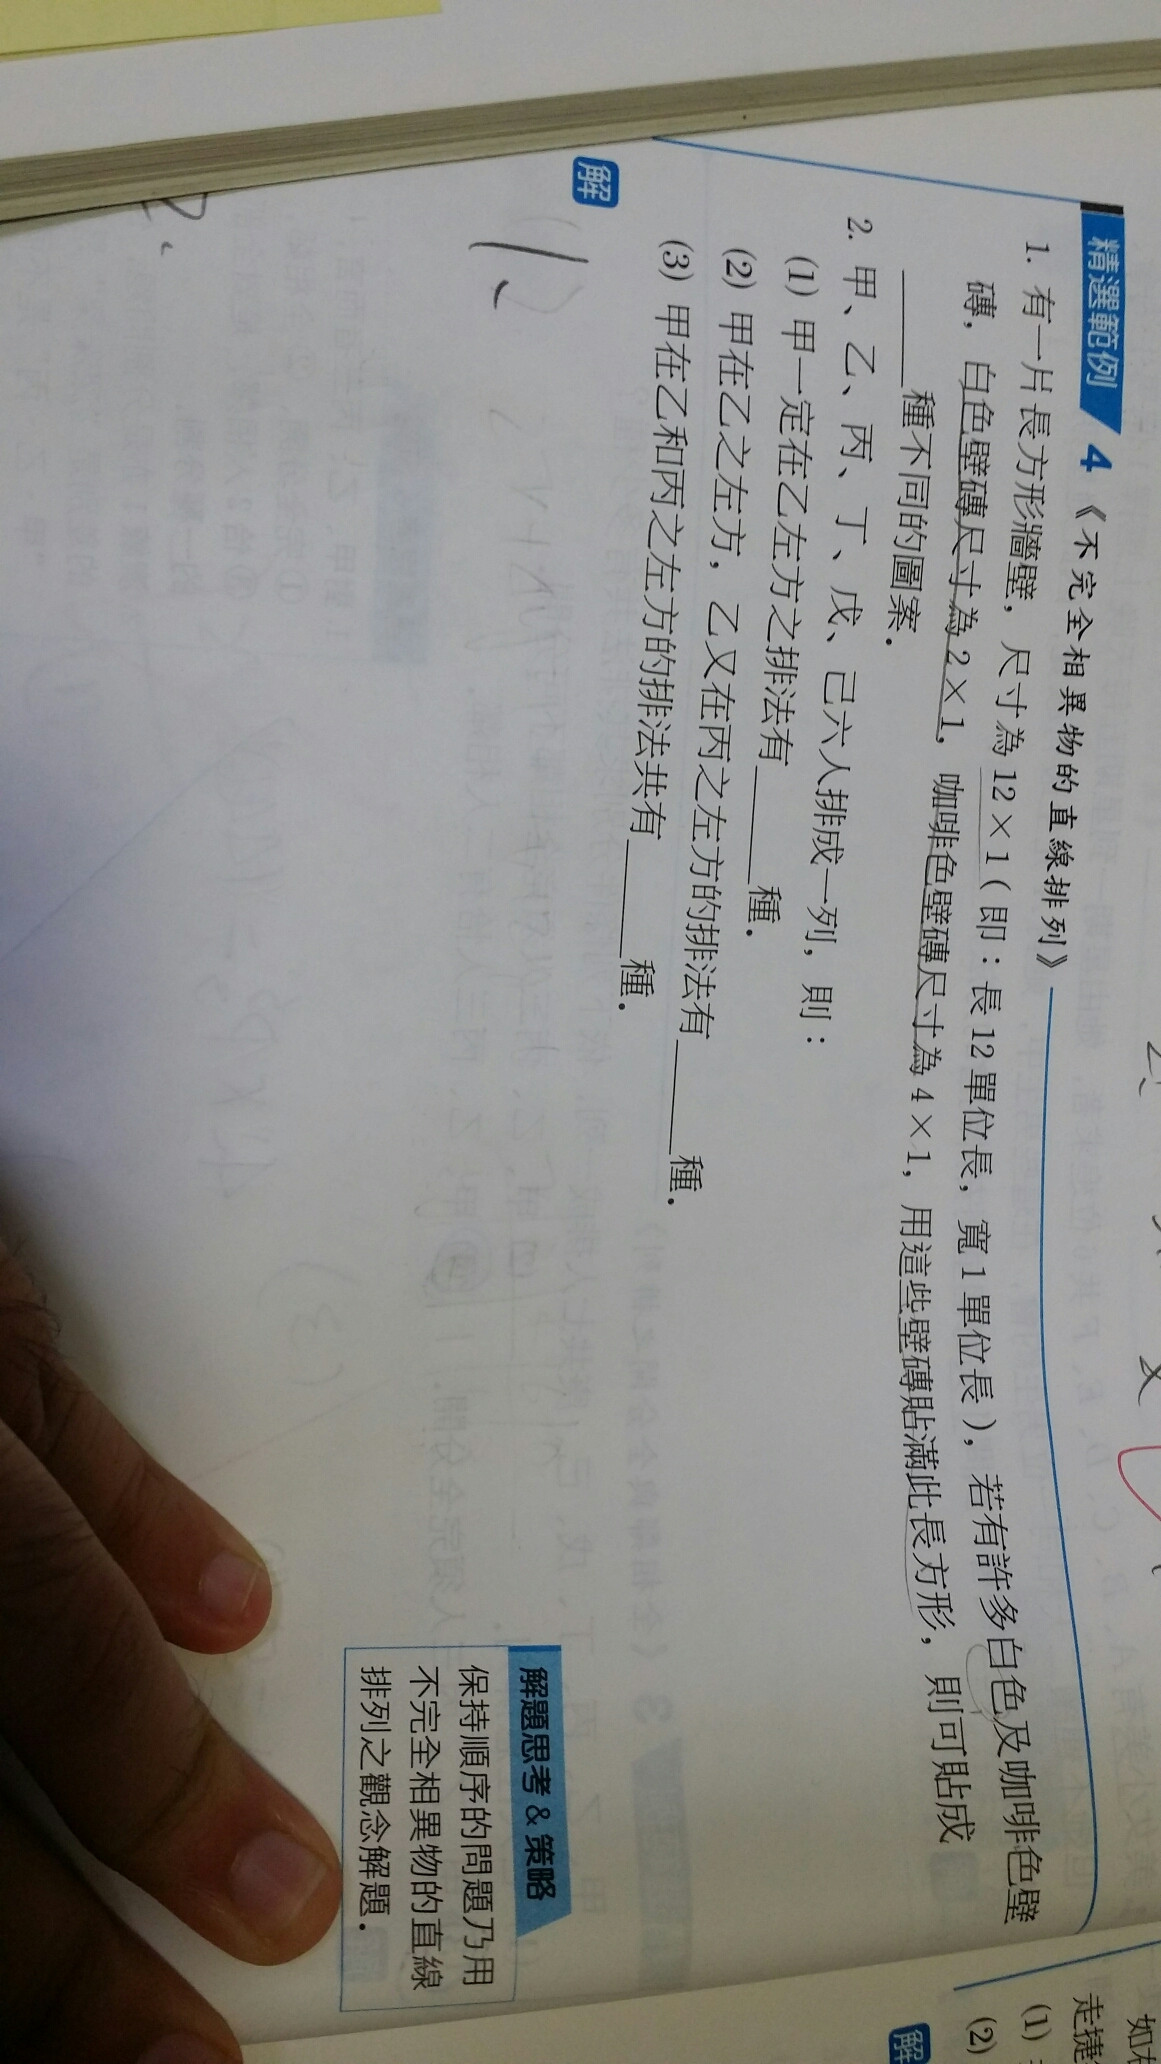 精選範例 4 《不完全相異物的直線排列》
1. 有一片長方形牆壁，尺寸為 12×1（即：長 12 單位長，寬 1 單位長），若有許多白色及咖啡色壁
磚，白色壁磚尺寸為 2×1，咖啡色壁磚尺寸為 4×1，用這些壁磚貼滿此長方形，則可貼成
____種不同的圖案．
2. 甲、乙、丙、丁、戊、己六人排成一列，則：
(1) 甲一定在乙左方之排法有____種．
(2) 甲在乙之左方，乙又在丙之左方的排法有____種．
(3) 甲在乙和丙之左方的排法共有____種．
解
1.
2.
解題思考 & 策略
保持順序的問題乃用
不完全相異物的直線
排列之觀念解題．
走捷
(1)
(2)
解